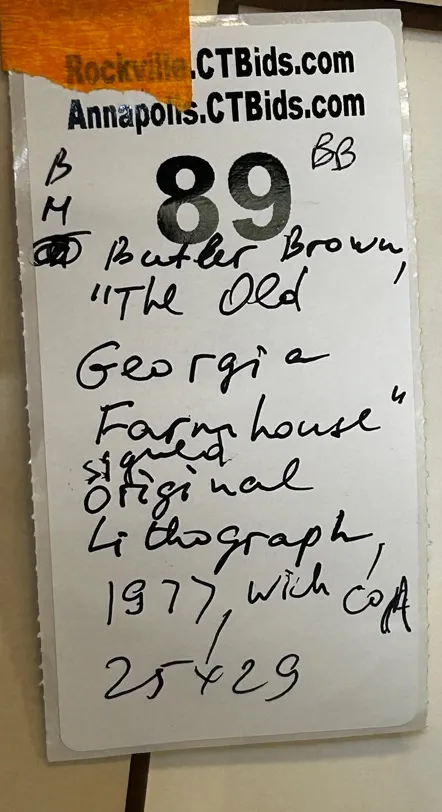 Rockville.CTBids.com
Annapolis.CTBids.com
B
M
89
BB
Butler Brown,
"The Old
Georgia
Farmhouse"
signed
Original
Lithograph,
1977, with CoA
25x29